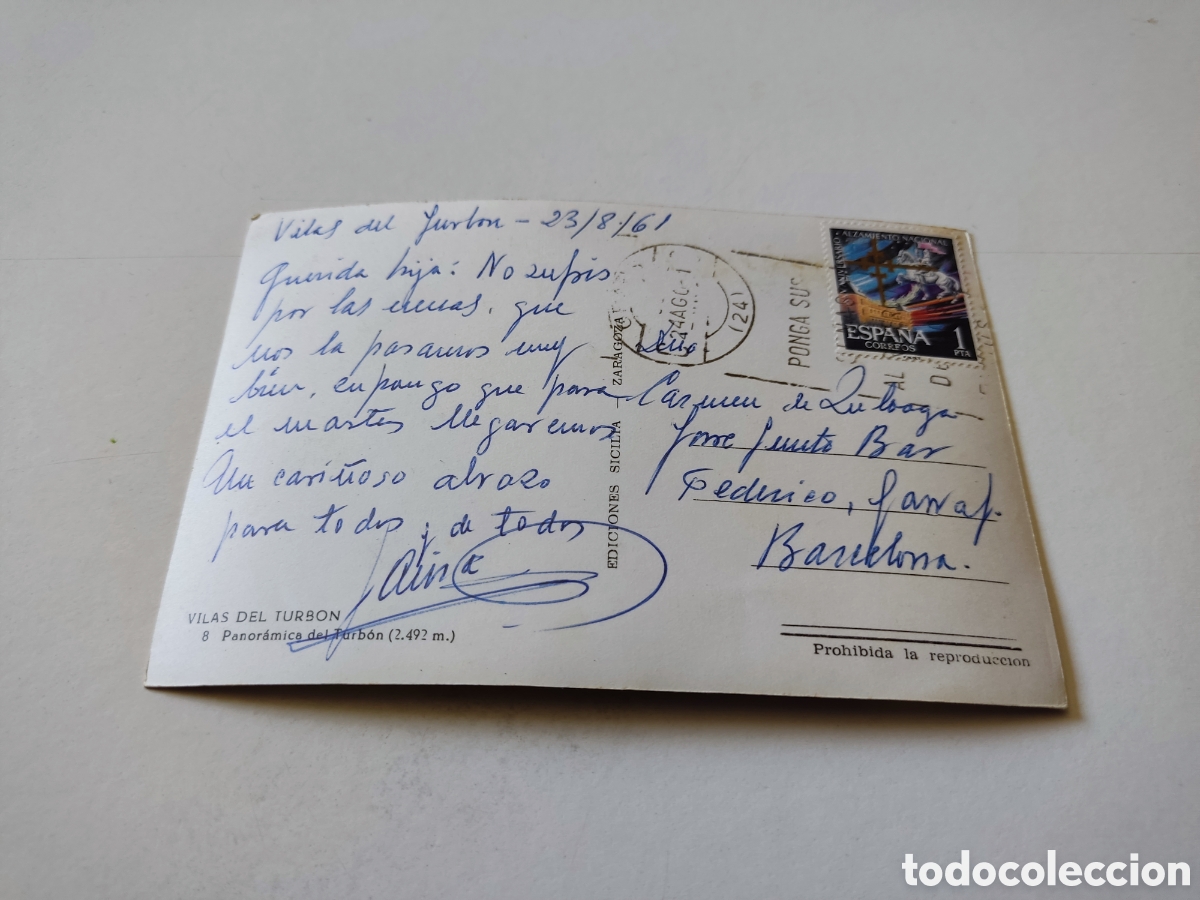 Vilas del Turbon - 23/8/61
Querida hija: No
por las que
nos la pasamos muy
bien, supongo que para
el martes llegaremos
Un cariñoso abrazo
para todos, de todos
VILAS DEL TURBON
8 Panorámica del Turbón (2.492 m.)
EDICIONES SICILIA - ZARAGOZA
24 AGO
(24)
PONGA SUS
AL D
ANIVERSARIO ALZAMIENTO NACIONAL
ESPAÑA
CORREOS
1 PTA
Carmen de
Torre Junto Bar
Federico, Garraf.
Barcelona.
Prohibida la reproduccion
todocoleccion